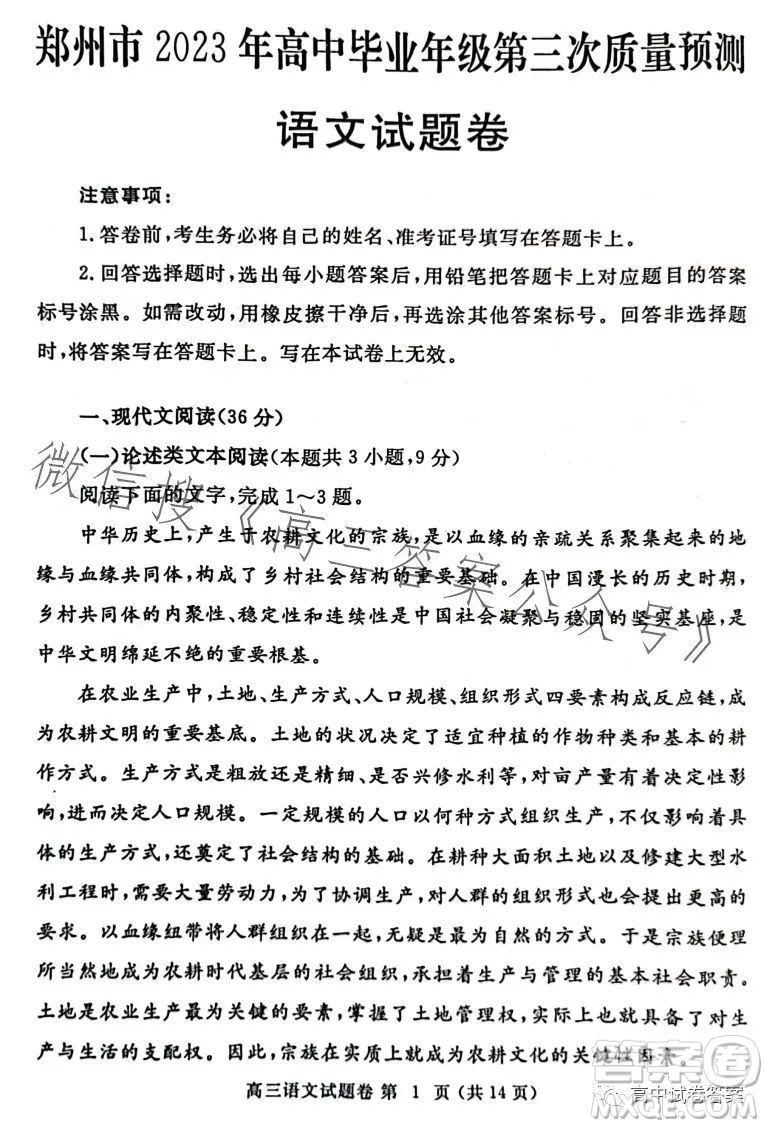 郑州市 2023 年高中毕业年级第三次质量预测
语文试题卷
注意事项：
1.答卷前,考生务必将自己的姓名、准考证号填写在答题卡上。
2.回答选择题时,选出每小题答案后,用铅笔把答题卡上对应题目的答案
标号涂黑。如需改动,用橡皮擦干净后,再选涂其他答案标号。回答非选择题
时,将答案写在答题卡上。写在本试卷上无效。
一、现代文阅读(36分)
(一)论述类文本阅读(本题共3小题,9分)
阅读下面的文字,完成1～3题。
中华历史上,产生于农耕文化的宗族,是以血缘的亲疏关系聚集起来的地
缘与血缘共同体,构成了乡村社会结构的重要基础。在中国漫长的历史时期,
乡村共同体的内聚性、稳定性和连续性是中国社会凝聚与稳固的坚实基座,是
中华文明绵延不绝的重要根基。
在农业生产中,土地、生产方式、人口规模、组织形式四要素构成反应链,成
为农耕文明的重要基底。土地的状况决定了适宜种植的作物种类和基本的耕
作方式。生产方式是粗放还是精细、是否兴修水利等,对亩产量有着决定性影
响,进而决定人口规模。一定规模的人口以何种方式组织生产,不仅影响着具
体的生产方式,还奠定了社会结构的基础。在耕种大面积土地以及修建大型水
利工程时,需要大量劳动力,为了协调生产,对人群的组织形式也会提出更高的
要求。以血缘纽带将人群组织在一起,无疑是最为自然的方式。于是宗族便理
所当然地成为农耕时代基层的社会组织,承担着生产与管理的基本社会职责。
土地是农业生产最为关键的要素,掌握了土地管理权,实际上也就具备了对生
产与生活的支配权。因此,宗族在实质上就成为农耕文化的关键性因素。
高三语文试题卷 第 1 页(共14页)
微信搜《高三答案公众号》
答案卷
MXQE.COM
高中试卷答案